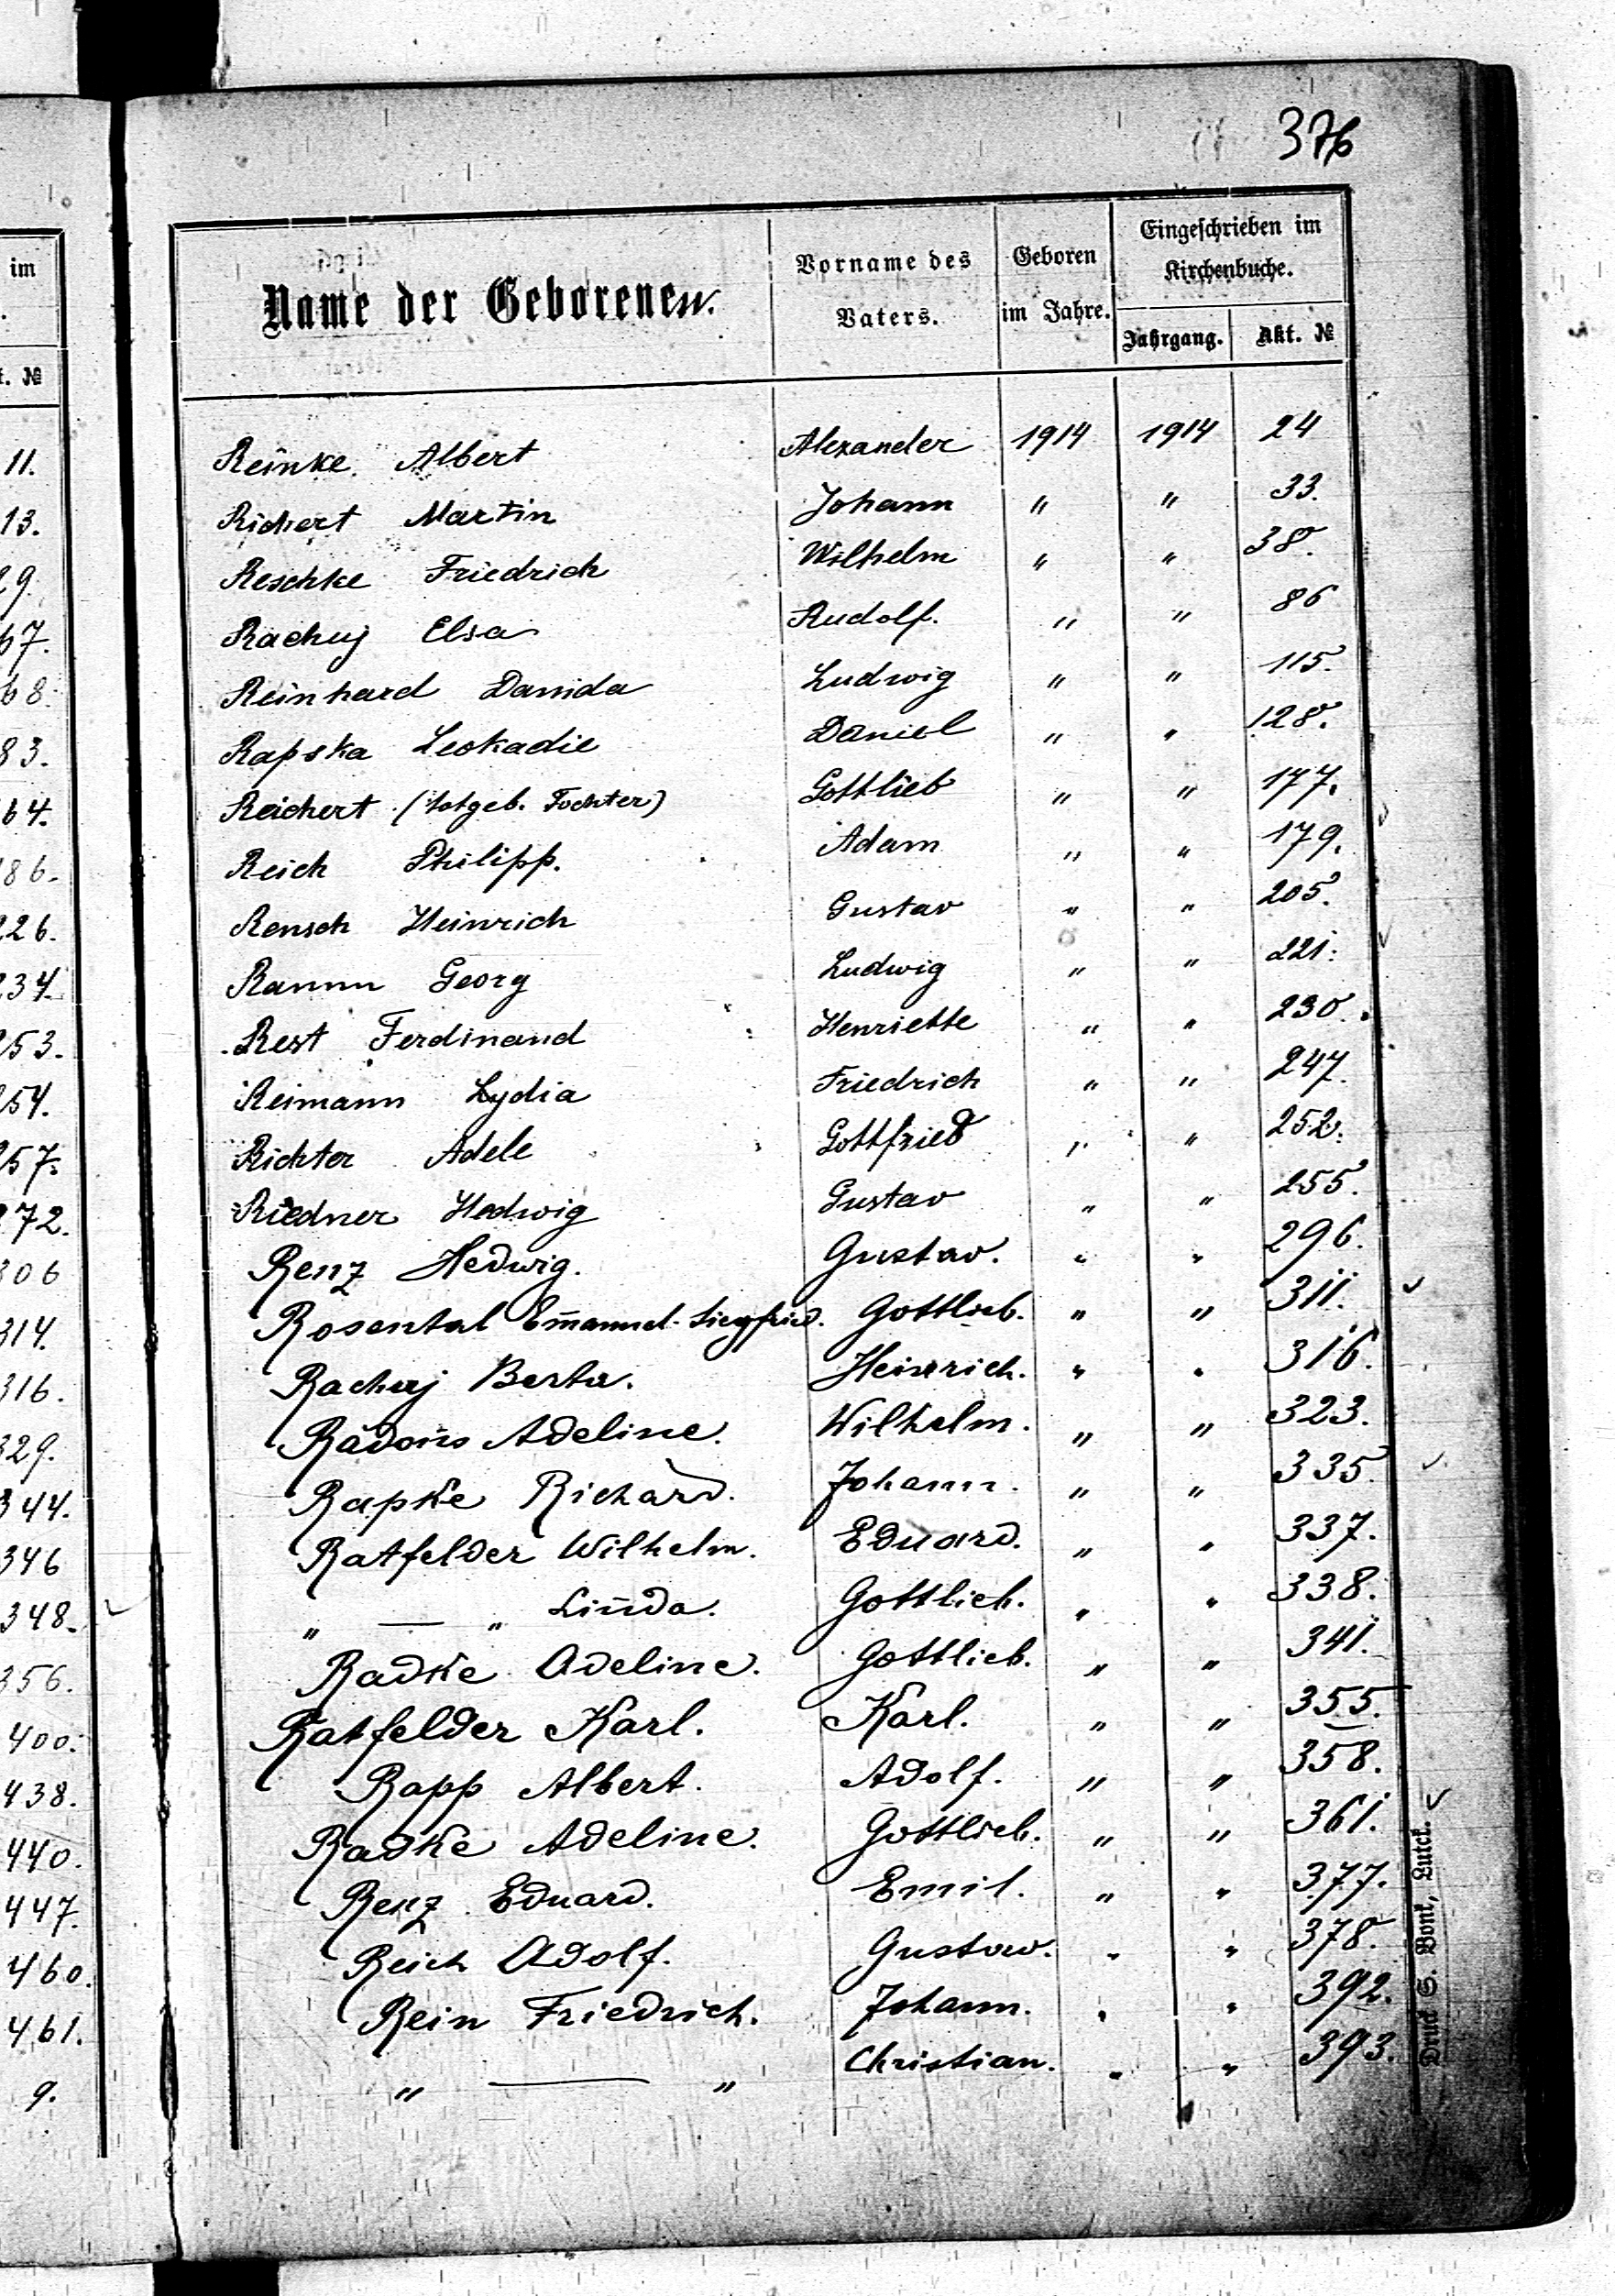 376
im
t. №
11.
13.
29.
67.
68.
83.
64.
186.
226.
234.
253.
254.
257.
272.
306
314.
316.
329.
344.
346
348.
356.
400.
438.
440.
447.
460.
461.
9.
Name der Geborenen. Vorname des Vaters. Geboren im Jahre. Eingeschrieben im Kirchenbuche.
Jahrgang. Akt. №
Reinke Albert Alexander 1914 1914 24
Richert Martin Johann " " 33.
Reschke Friedrich Wilhelm " " 38.
Rachuj Elsa Rudolf. " " 86
Reinhard Danida Ludwig " " 115.
Rapska Leokadie Daniel " " 128.
Reichert (totgeb. Tochter) Gottlieb " " 177.
Reich Philipp. Adam " " 179.
Rensch Heinrich Gustav " " 205.
Ramm Georg Ludwig " " 221.
Rest Ferdinand Henriette " " 230.
Reimann Lydia Friedrich " " 247.
Richter Adele Gottfried " " 252.
Riedner Hedwig Gustav " " 255.
Renz Hedwig. Gustav. " " 296.
Rosental Em̄anuel-Siegfried. Gottlieb. " " 311.
Rachuj Berta. Heinrich. " " 316.
Adeline. Wilhelm. " " 323.
Rapke Richard. Johann. " " 335.
Ratfelder Wilhelm. Eduard. " " 337.
" — " Linda. Gottlieb. " " 338.
Radke Adeline. Gottlieb. " " 341.
Ratfelder Karl. Karl. " " 355.
Rapp Albert. Adolf. " " 358.
Radke Adeline. Gottlieb. " " 361.
Renz Eduard. Emil. " " 377.
Reich Adolf. Gustav. " " 378.
Rein Friedrich. Johann. " " 392.
" — " Christian. " " 393.
Druck S. Bonk, Luck.